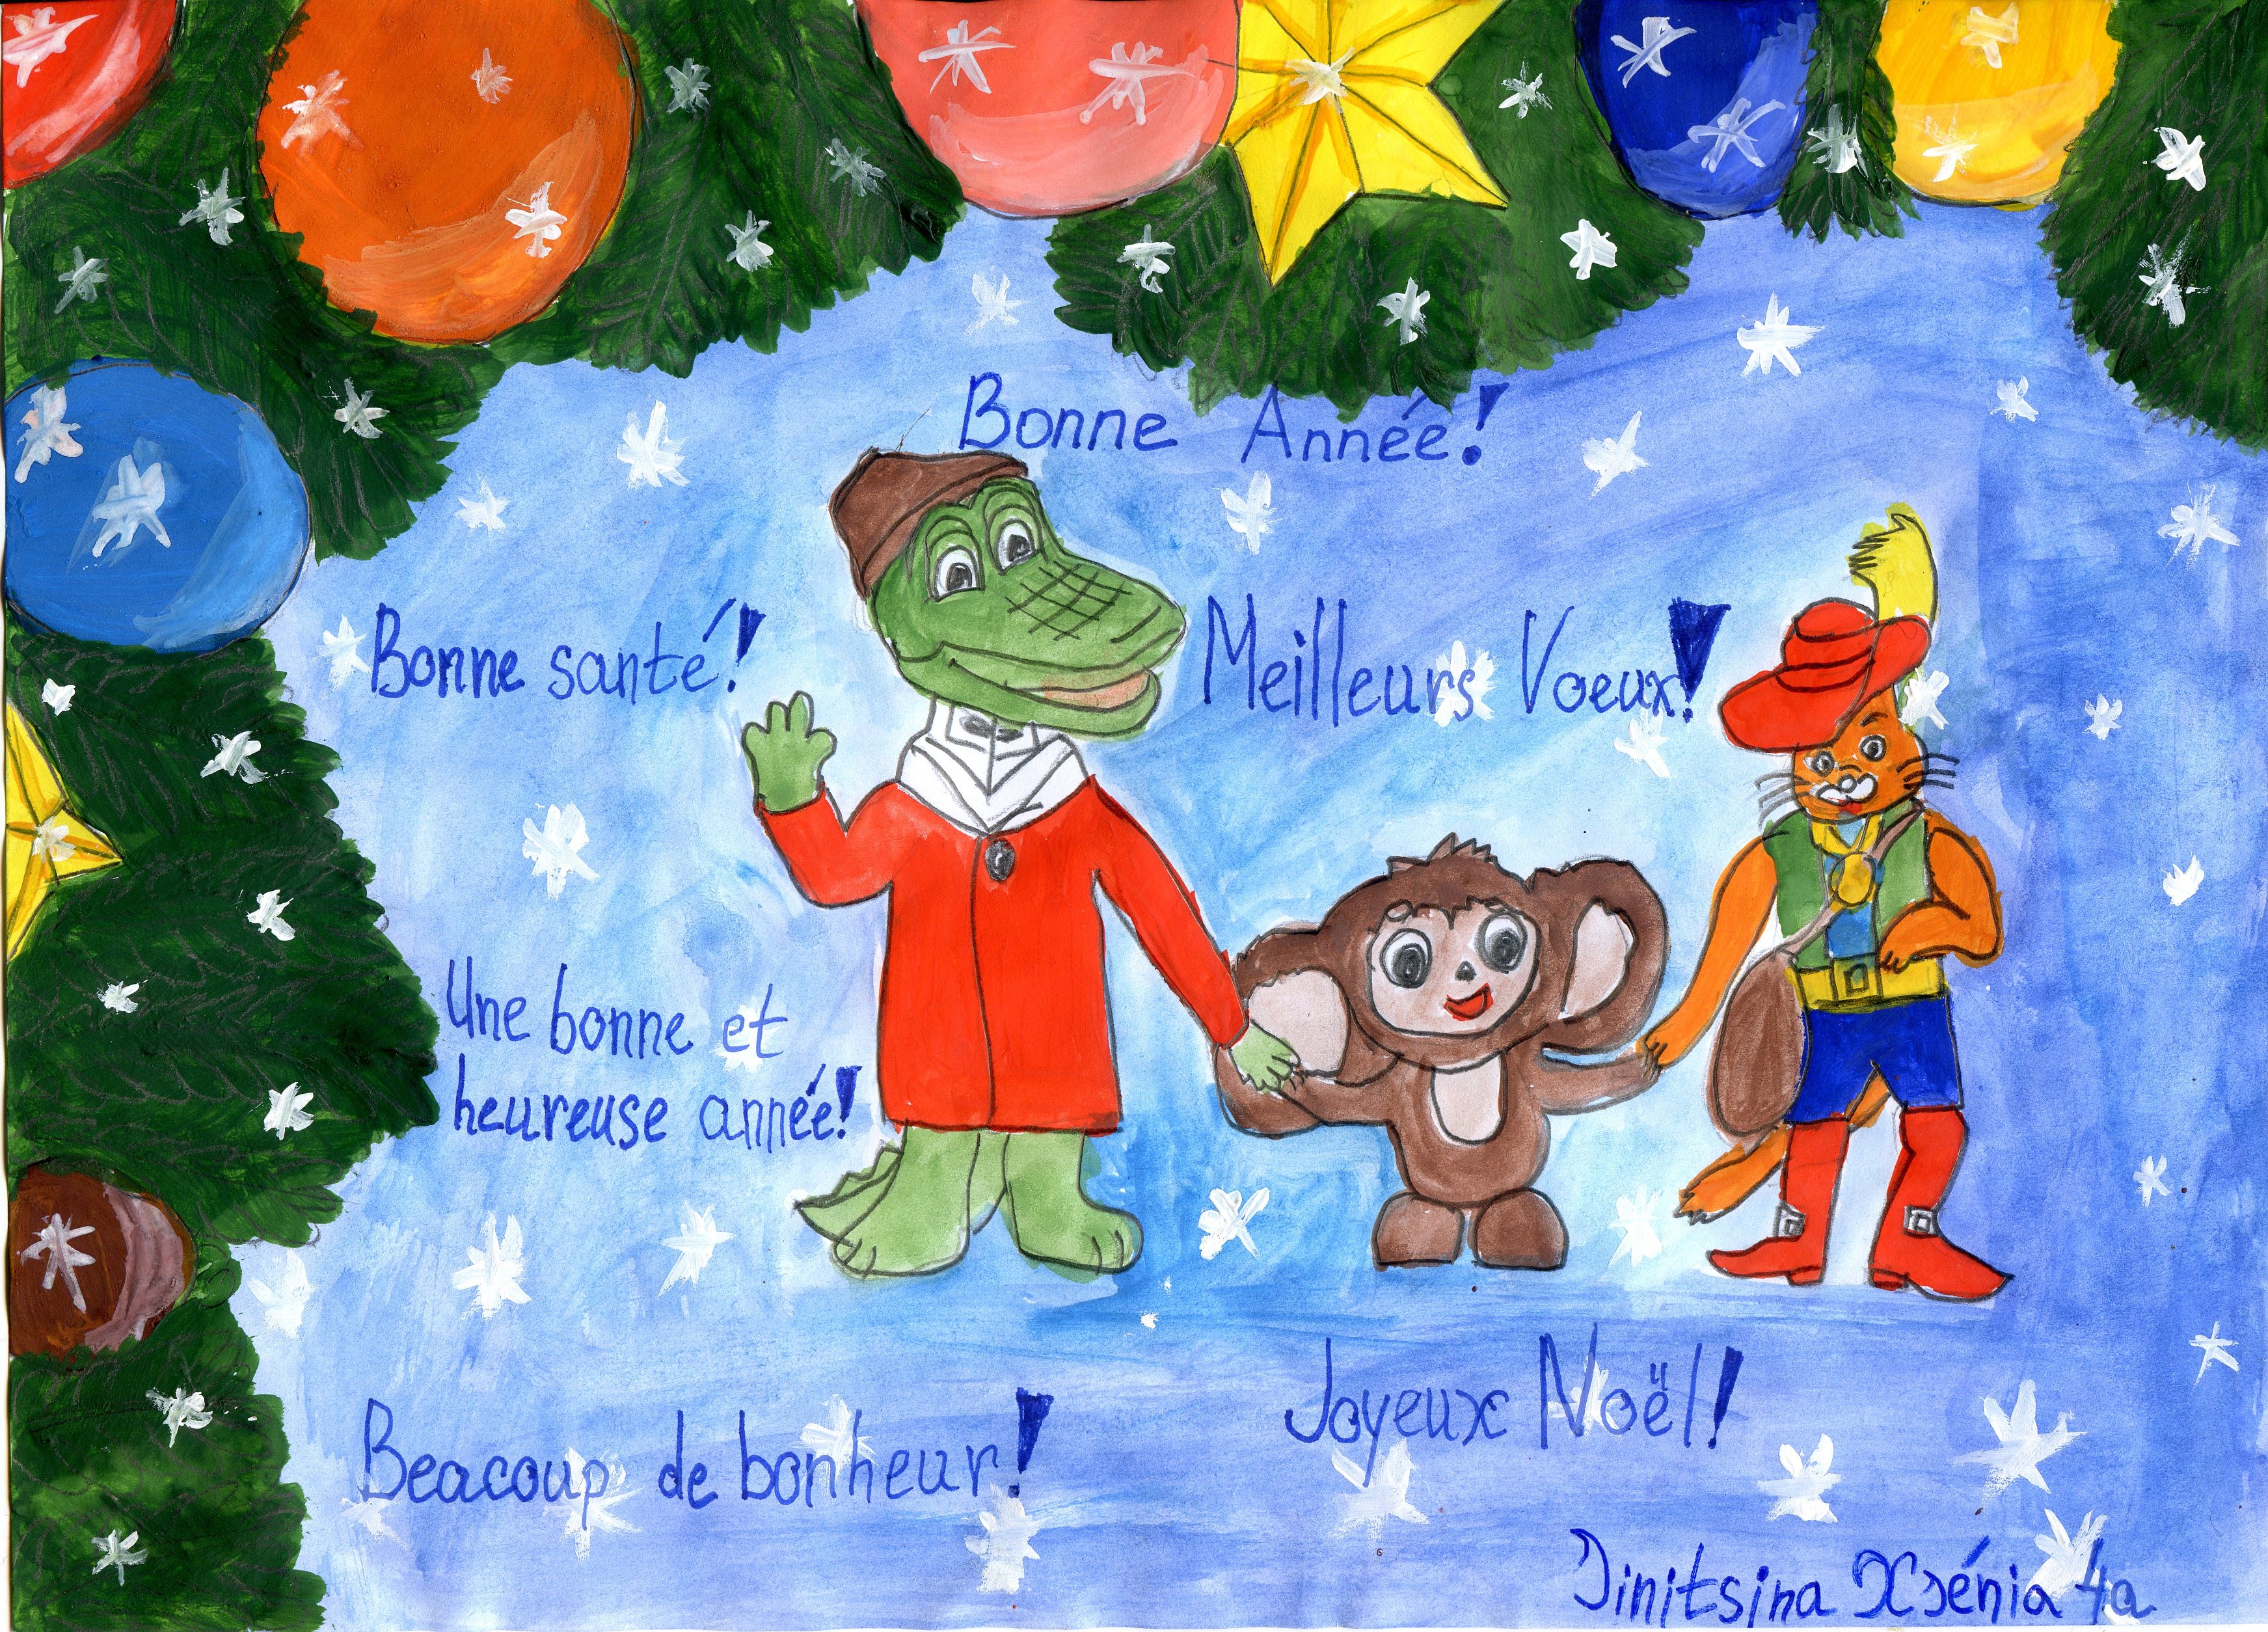 Bonne Année!
Bonne santé!
Meilleurs Voeux!
Une bonne et
heureuse année!
Beacoup de bonheur!
Joyeux Noël!
Jinitsina Xsénia 4a